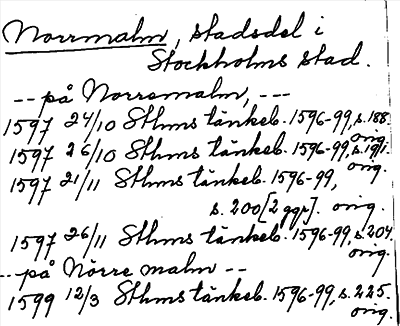 Norrmalm, stadsdel i
Stockholms stad.
-- på Norremalm, ---
1597 24/10 Sthms tänkeb. 1596-99, s. 188.
orig.
1597 26/10 Sthms tänkeb. 1596-99, s. 191.
orig.
1597 21/11 Sthms tänkeb. 1596-99,
s. 200 [2 ggr]. orig.
1597 26/11 Sthms tänkeb. 1596-99, s. 204.
orig.
-- på Nörre malm --
1599 12/3 Sthms tänkeb. 1596-99, s. 225.
orig.